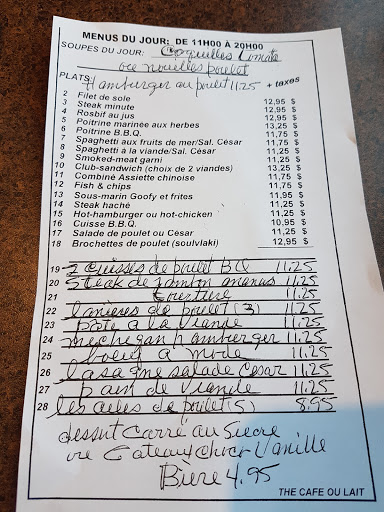 MENUS DU JOUR: DE 11H00 À 20H00
SOUPES DU JOUR: Coquilles Tomate
ou nouilles poulet
PLATS: Hamburger au poulet 11.25 + taxes
2 Filet de sole 12,95 $
3 Steak minute 12,95 $
4 Rosbif au jus 12,95 $
5 Poitrine marinée aux herbes 13,25 $
6 Poitrine B.B.Q. 11,75 $
7 Spaghetti aux fruits de mer/Sal. César 11,75 $
8 Spaghetti à la viande/Sal. César 11,25 $
9 Smoked-meat garni 11,25 $
10 Club-sandwich (choix de 2 viandes) 13,25 $
11 Combiné Assiette chinoise 11,75 $
12 Fish & chips 11,75 $
13 Sous-marin Goofy et frites 11,95 $
14 Steak haché 11,25 $
15 Hot-hamburger ou hot-chicken 11,25 $
16 Cuisse B.B.Q. 10,95 $
17 Salade de poulet ou César 11,25 $
18 Brochettes de poulet (souvlaki) 12,95 $
19 2 cuisses de poulet BQ 11.25
20 Steak de jambon ananas 11.25
21 Tourtière 11.25
22 lanieres de poulet (3) 11.25
23 Pate a la viande 11.25
24 mechegan hamburger 11.25
25 boeuf a mode 11.25
26 lasagne salade Cesar 11.25
27 pain de viande 11.25
28 les ailes de poulet (5) 8.95
dessut Carré au Sucre
ou Gateaux choco Vanille
Bière 4.95
THE CAFE OU LAIT